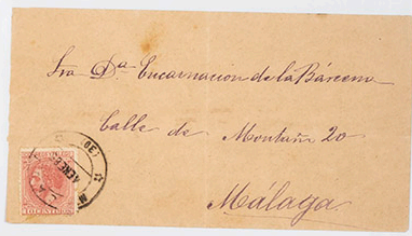 Sra Dª Encarnacion de la Bárcena
Calle de Montaño 20
Málaga
10 CENT